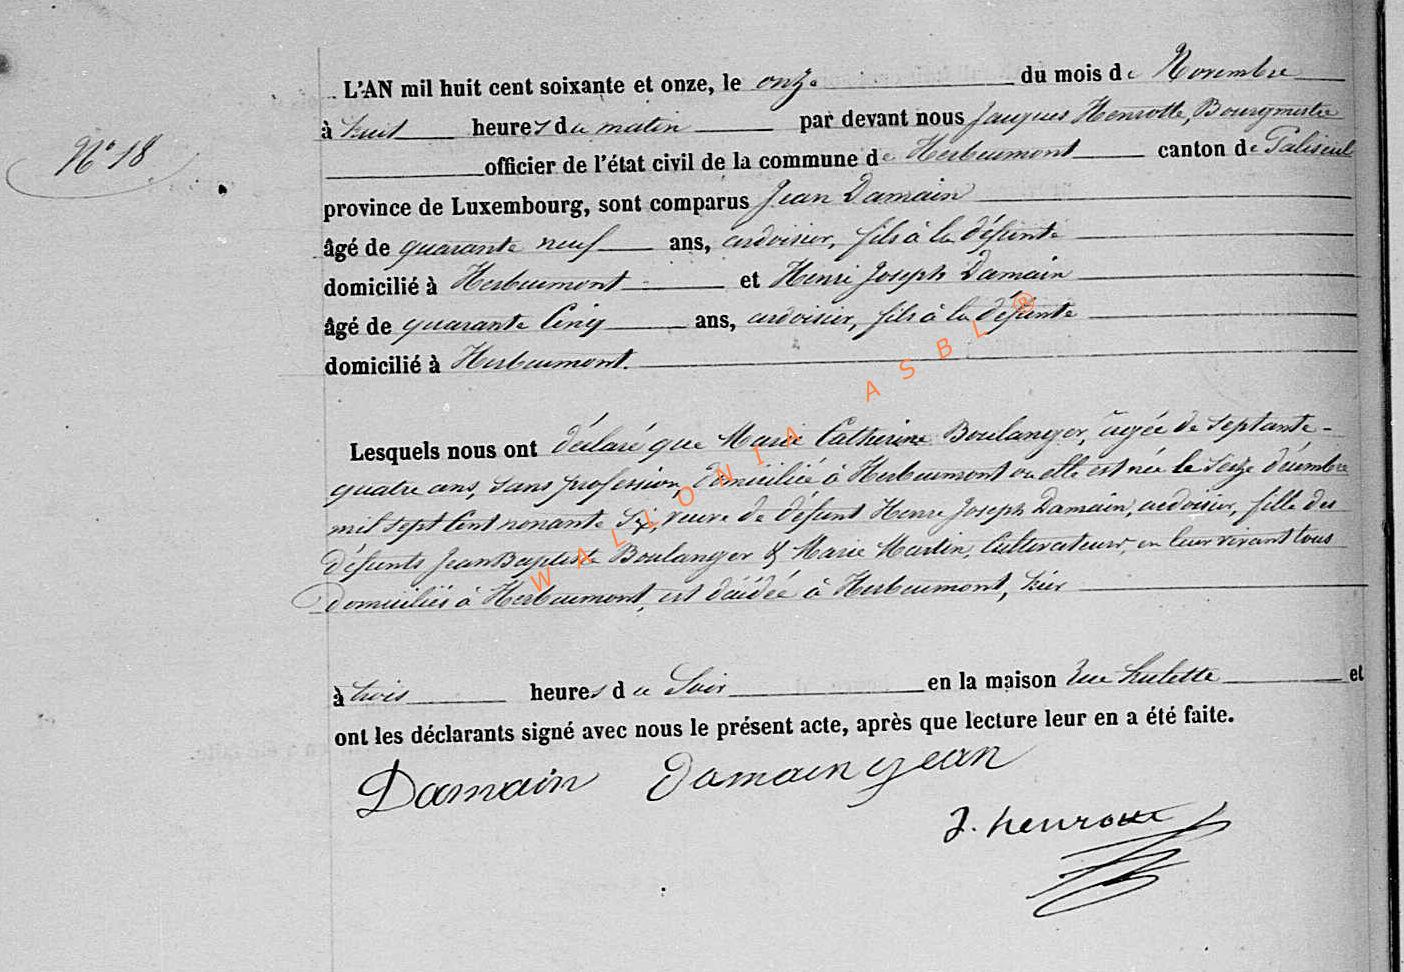 L'AN mil huit cent soixante et onze, le onze du mois de Novembre
à huit heures du matin par devant nous Jacques Henrotte, Bourgmestre
N° 18
officier de l'état civil de la commune de Herbeumont canton de Paliseul
province de Luxembourg, sont comparus Jean Damain
âgé de quarante neuf ans, ardoisier, fils à la défunte
domicilié à Herbeumont et Henri Joseph Damain
âgé de quarante Cinq ans, ardoisier, fils à la défunte
domicilié à Herbeumont.
Lesquels nous ont déclaré que Marie Catherine Boulanger, âgée de septante-
quatre ans, sans profession, domiciliée à Herbeumont où elle est née le seize décembre
mil sept Cent nonante Six, veuve de défunt Henri Joseph Damain, ardoisier, fille des
défunts Jean Baptiste Boulanger & Marie Martin, Cultivateurs, en leur vivant tous
Domiciliés à Herbeumont, est décédée à Herbeumont, hier
à trois heures du Soir en la maison rue hulette et
ont les déclarants signé avec nous le présent acte, après que lecture leur en a été faite.
Damain Damain jean
J. henrotte
WALLONIA ASBL ®